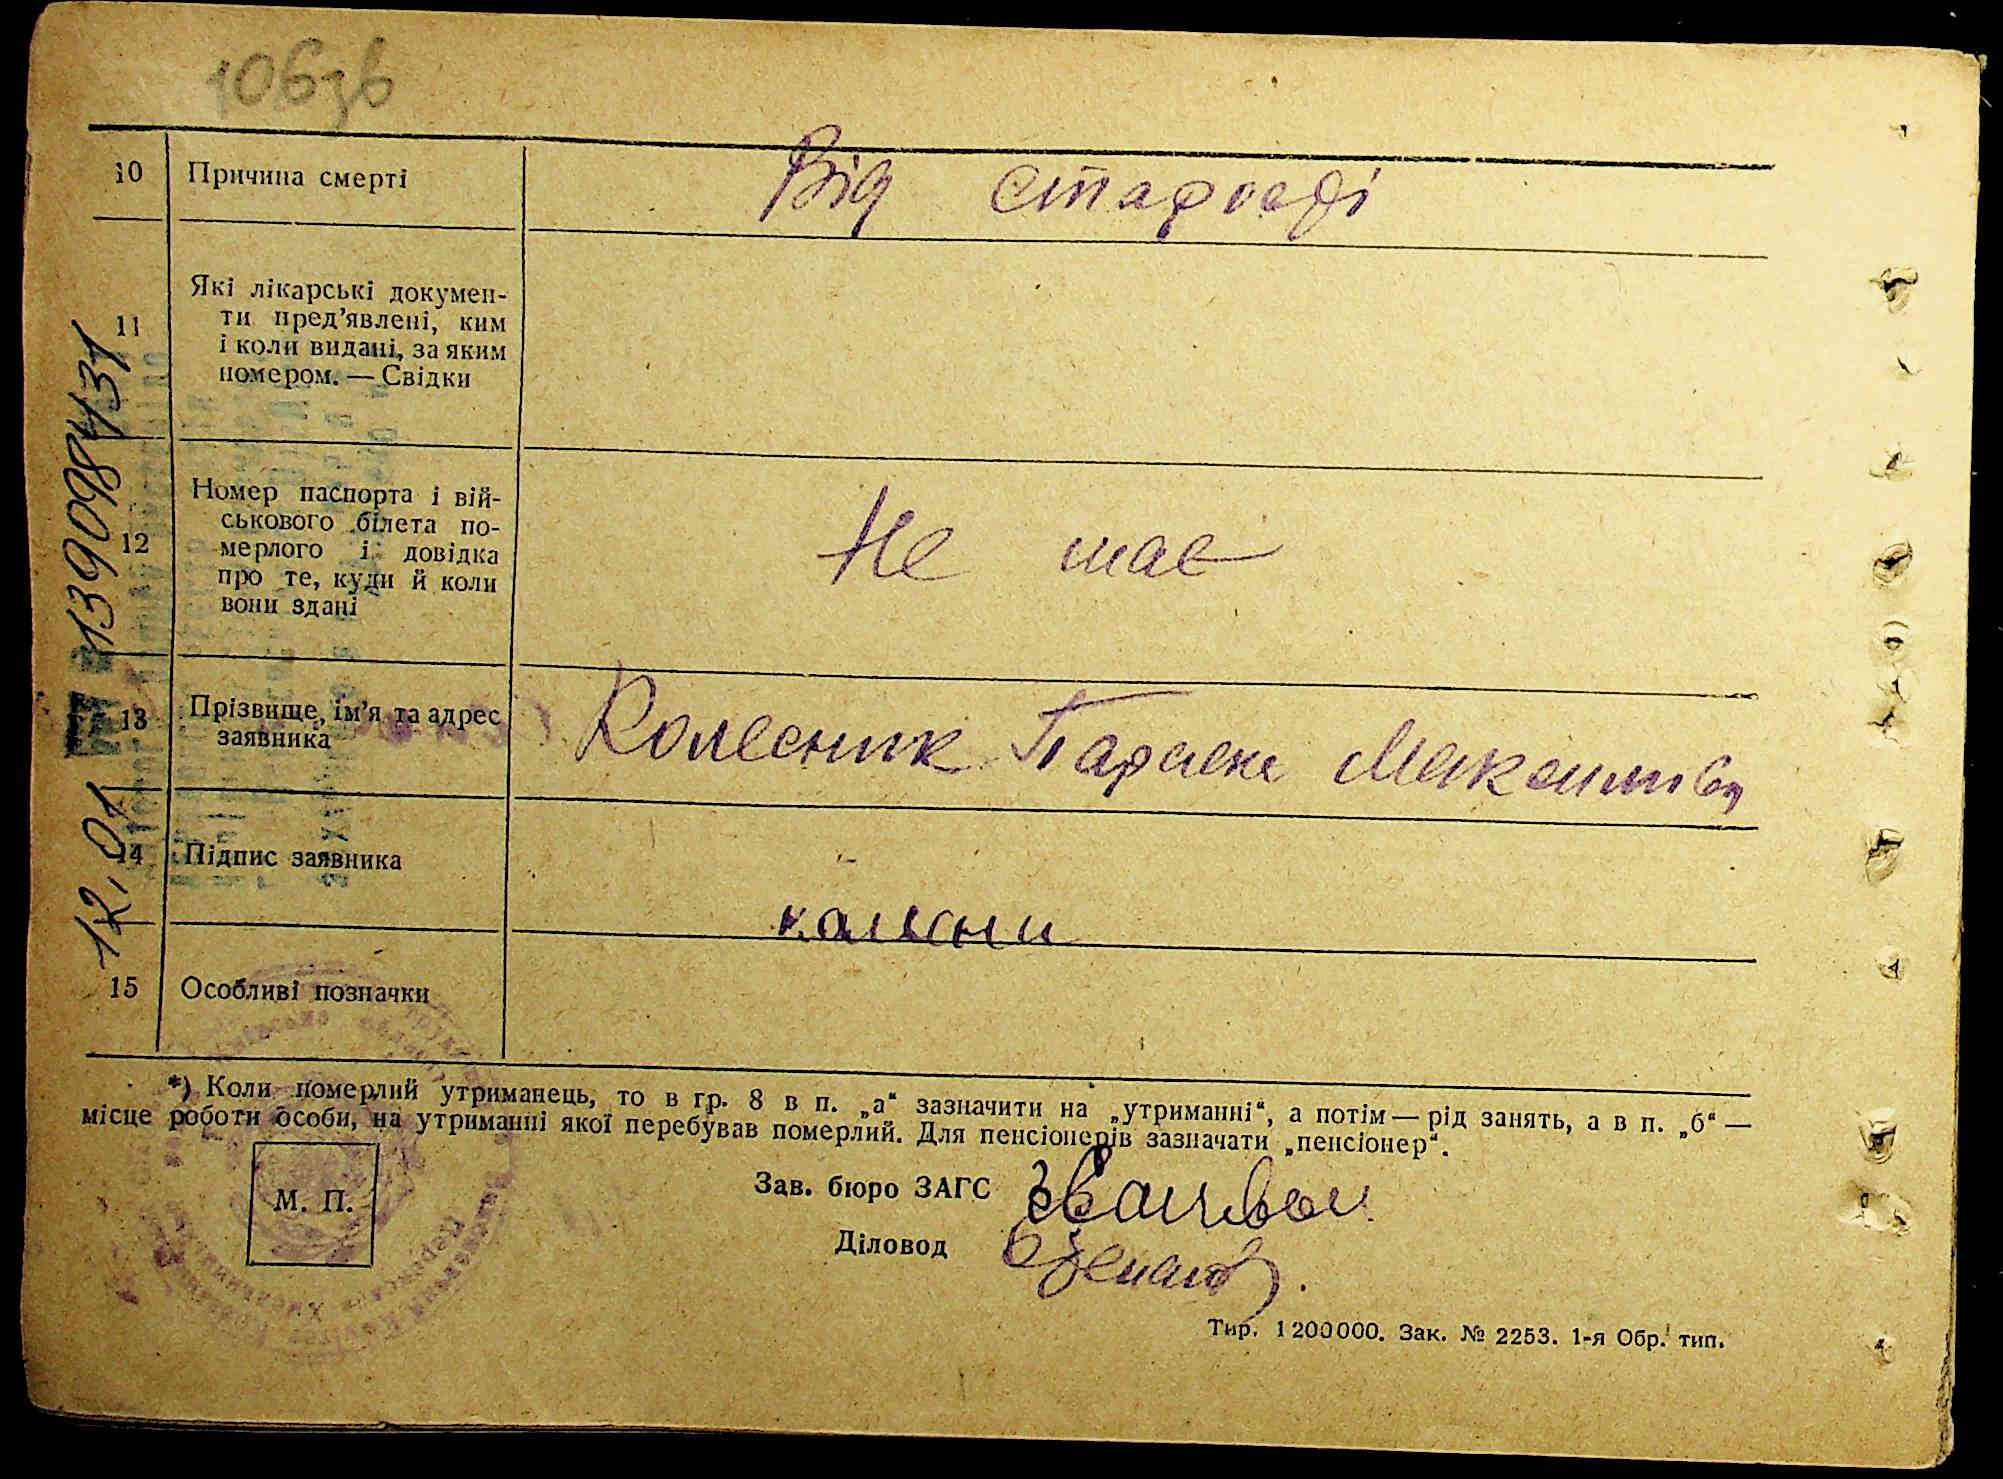 106зв
10 Причина смерті Від старості
11 Які лікарські докумен-
ти пред'явлені, ким
і коли видані, за яким
номером. — Свідки
12 Номер паспорта і вій-
ськового білета по-
мерлого і довідка
про те, куди й коли
вони здані
Не має
13 Прізвище, ім'я та адрес
заявника
Колесник Максимівн
14 Підпис заявника
15 Особливі позначки
*) Коли померлий утриманець, то в гр. 8 в п. „а“ зазначити на „утриманні“, а потім — рід занять, а в п. „б“ —
місце роботи особи, на утриманні якої перебував померлий. Для пенсіонерів зазначати „пенсіонер“.
М. П.
Зав. бюро ЗАГС
Діловод
Тир. 1200000. Зак. № 2253. 1-я Обр. тип.
139098431
12.01